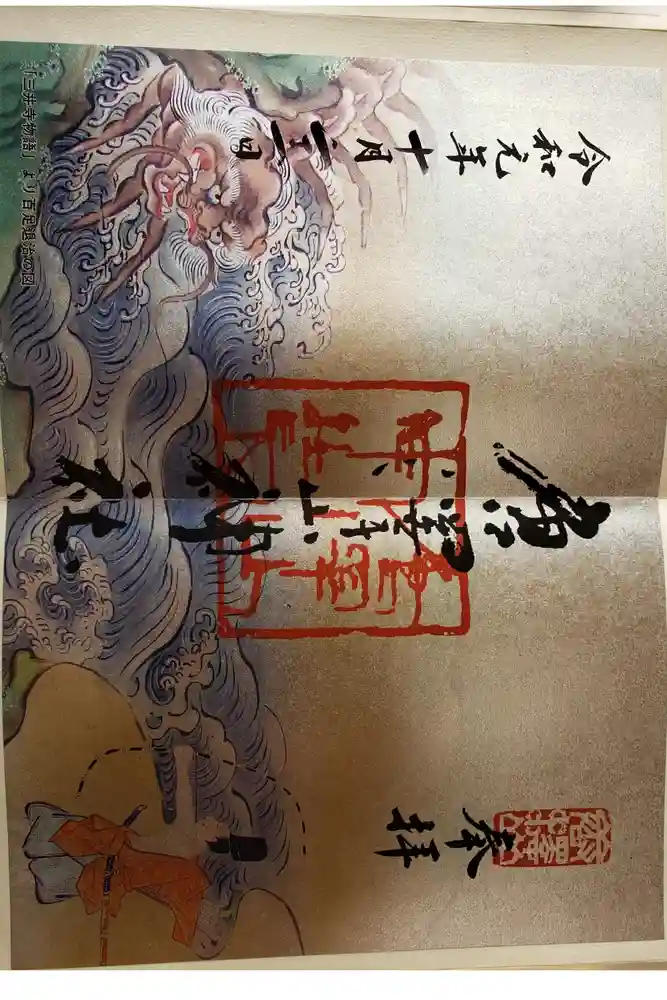 奉拝
唐澤山神社
令和元年十月
「三井寺物語」より百足退治の図